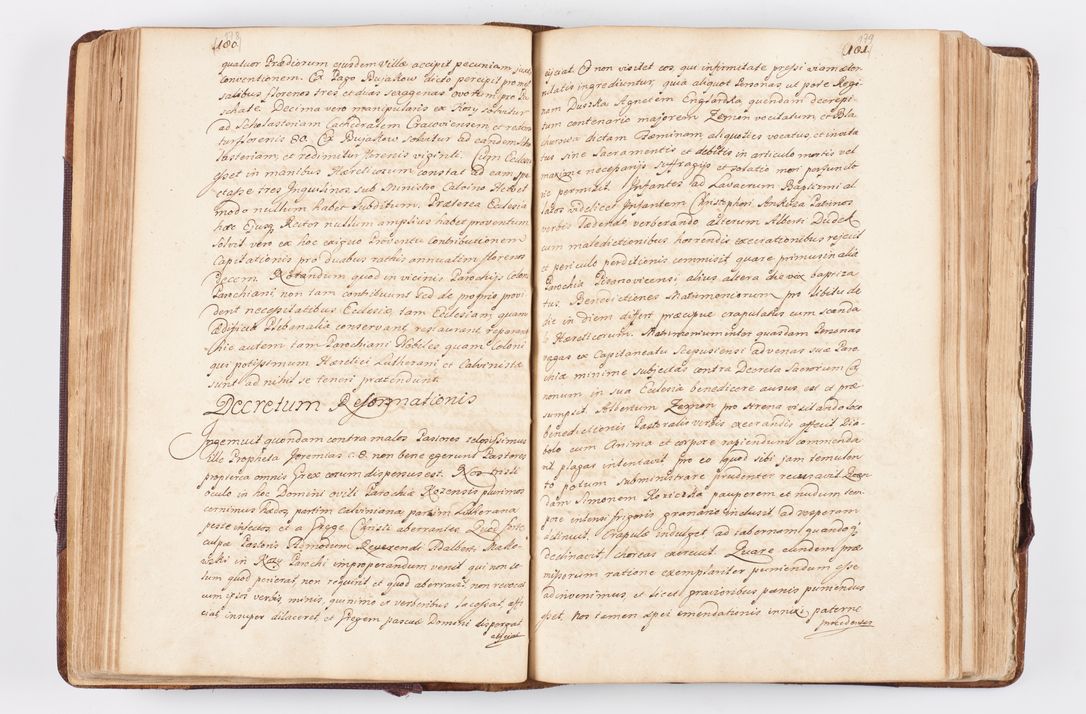 180.
quatuor Prædiorum ejusdem Villæ accipit pecuniam, juxta
conventionem. Ex Pago Bujakow dicto percipit pro mis
salibus florenos tres, et dias sexagenas ovorum pro Pa
schate. Decima vero manipularis ex Kozy solvitur
ad Scholasteriam Cathedralem Cracoviensem, et redimi
tur florenis 80. Ex Bujakow solvitur ad eandem Scho
lasteriam, et redimitur florenis viginti. Cum Ecclesia
esset in manibus Hæreticorum constat ad eam spe
ctasse tres Inquilinos sub Ministro Calvino
modo nullum habet subditum. Præterea Ecclesia
hæc Ejusq Rector nullum amplius habet proventum
Solvit vero ex hoc exiguo Proventu contributionem
Capitationis pro duabus rathis annuatim florenos
decem. Notandum quod in vicinis Parochijs Coloni
Parochiani non tam contribuunt sed de proprio provi
dent necessitatibus Ecclesiæ, tam Ecclesiam, quam
Ædificia Plebanalia conservant, restaurant, reparant
hic autem tam Parochiani Nobiles, quam Coloni
qui potissimum Hæretici Lutherani, et Calvinistæ
sunt ad nihil se teneri prætendunt.
Decretum Reformationis
Ingemuit quondam contra malos Pastores zelosissimus
ille Propheta Jeremias c. 8. non bene egerunt Pastores
propterea omnis Grex eorum dispersus est. Nos tristi
oculo in hoc Domini ovili Parochiæ Kozensis plurimos
cernimus hædos, partim Calviniana, partim Lutherana
peste infectos, et a Grege Christi aberrantes. Quid forte
culpæ Pastoris Admodum Reverendi Adalberti
in Kozy Parochi improperandum venit qui non so
lum quod perierat non requirit, et quod aberravit non revocat
cum ipsos verbis, minis, quinimo et verberibus lacessat, affi
ciat, insuper dilaceret, et Gregem pascuæ Domini dispergat
abjiciat
181.
ejiciat. Et non visitet eos qui infirmitate pressi viam æter
nitatis ingrediuntur, quia aliquot Personas, ut pote Regi
nam Duszka Agnetem Englardka, quendam decrepi
tum centenario majorem Zemon vocitatum, et Bla
dictam Fæminam, aliquoties vocatus, et invita
tus sine Sacramentis et debitis in articulo mortis vel
maxime necessarijs suffragijs, et solatio mori perfundo
rie permisit. Infantes ad Lavacrum Baptismi al
latos videlicet Infantem Christophori Patrinos
verbis lædendo, verberando alterum Alberti Dudek
cum maledictionibus horrendis execrationibus rejecit
et periculo perditionis commisit quare primus in alia
Parochia Pisarovicensi alius altera die vix baptiza
tus. Benedictiones Matrimoniorum pro libitu de
die in diem differt præcipue crapulatus cum scanda
lo Hæreticorum. Matrimonium inter quasdam Personas
vagas ex Capitaneatu Scepusiensi advenas suæ Paro
chiæ minime subjectas contra Decreta Sacrorum Ca
nonum in sua Ecclesia benedicere ausus est et præ
sumpsit. Albertum Zemon pro strena visitando loco
benedictionis Pastoralis verbis execrandis affecit Dia
bolo cum Anima et corpore rapiendum commenda
vit, plagas intentavit pro eo quod sibi jam temulen
to potum subministrare prudenter recusavit. Quen
dam Simonem pauperem et nudum tem
pore intensi frigoris granario inclusit ad vesperam
detinuit. Crapulæ indulget, ad tabernam quandoq
declinavit, choreas exercuit. Quare eundem præ
missorum ratione exemplariter puniendum esse
adinvenimus, et licet gravioribus pænis puniendus
esset. Nos tamen spei emendationis innixi, paterne
procedentes